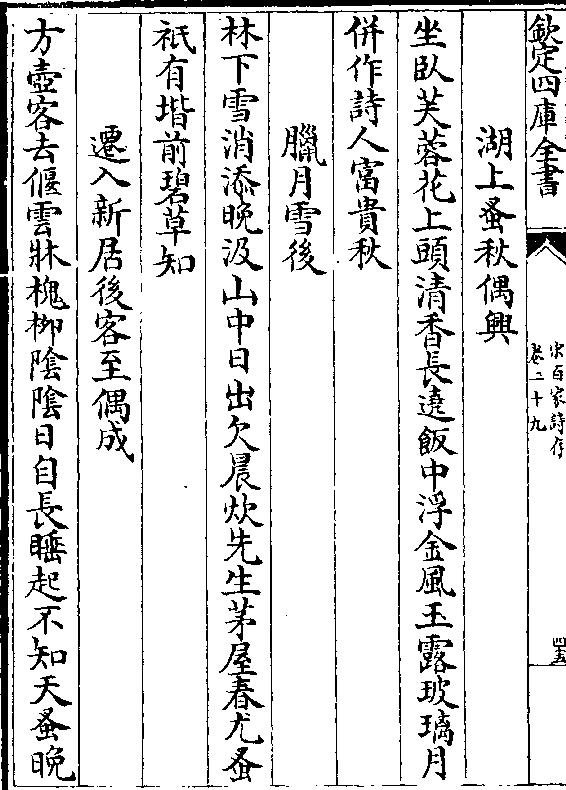 欽定四庫全書
宋百家詩存
卷二十九
四五
湖上蚤秋偶興
坐臥芙蓉花上頭清香長遶飯中浮金風玉露玻璃月
併作詩人富貴秋
臘月雪後
林下雪消添晚汲山中日出欠晨炊先生茅屋春尤蚤
祇有堦前碧草知
遷入新居後客至偶成
方壺客去偃雲牀槐柳陰陰日自長睡起不知天蚤晚